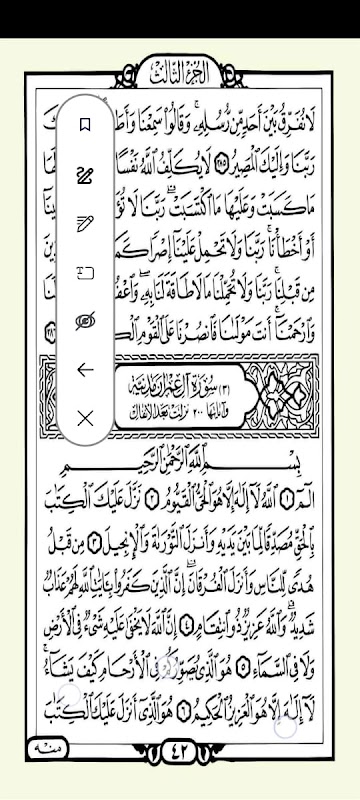 الجزء الثالث
لَا نُفَرِّقُ بَيْنَ أَحَدٍ مِّن رُّسُلِهِۦ ۚ وَقَالُوا۟ سَمِعْنَا
رَبَّنَا وَإِلَيْكَ ٱلْمَصِيرُ ٢٨٥ لَا يُكَلِّفُ ٱللَّهُ نَفْسًا
مَا كَسَبَتْ وَعَلَيْهَا مَا ٱكْتَسَبَتْ ۗ رَبَّنَا لَا
أَوْ أَخْطَأْنَا ۚ رَبَّنَا وَلَا تَحْمِلْ عَلَيْنَآ إِصْرًا
مِن قَبْلِنَا ۚ رَبَّنَا وَلَا تُحَمِّلْنَا مَا لَا طَاقَةَ لَنَا بِهِۦ ۖ
وَٱرْحَمْنَآ ۚ أَنتَ مَوْلَىٰنَا فَٱنصُرْنَا عَلَى ٱلْقَوْمِ
(٣) سُورَةُ آلِ عِمْرَانَ مَدَنِيَّة
وآياتها ٢٠٠ نزلت بعد الأنفال
بِسْمِ ٱللَّهِ ٱلرَّحْمَٰنِ ٱلرَّحِيمِ
الٓمٓ ١ ٱللَّهُ لَآ إِلَٰهَ إِلَّا هُوَ ٱلْحَىُّ ٱلْقَيُّومُ ٢ نَزَّلَ عَلَيْكَ ٱلْكِتَٰبَ
بِٱلْحَقِّ مُصَدِّقًا لِّمَا بَيْنَ يَدَيْهِ وَأَنزَلَ ٱلتَّوْرَىٰةَ وَٱلْإِنجِيلَ ٣ مِن قَبْلُ
هُدًى لِّلنَّاسِ وَأَنزَلَ ٱلْفُرْقَانَ ۗ إِنَّ ٱلَّذِينَ كَفَرُوا۟ بِـَٔايَٰتِ ٱللَّهِ لَهُمْ عَذَابٌ
شَدِيدٌ ۗ وَٱللَّهُ عَزِيزٌ ذُو ٱنتِقَامٍ ٤ إِنَّ ٱللَّهَ لَا يَخْفَىٰ عَلَيْهِ شَىْءٌ فِى ٱلْأَرْضِ
وَلَا فِى ٱلسَّمَآءِ ٥ هُوَ ٱلَّذِى يُصَوِّرُكُمْ فِى ٱلْأَرْحَامِ كَيْفَ يَشَآءُ ۚ
لَآ إِلَٰهَ إِلَّا هُوَ ٱلْعَزِيزُ ٱلْحَكِيمُ ٦ هُوَ ٱلَّذِىٓ أَنزَلَ عَلَيْكَ ٱلْكِتَٰبَ
٤٢
منه